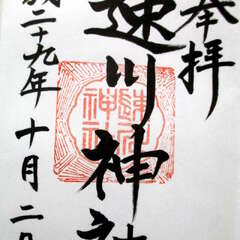 奉拝
速川神社
成二十九年十月二日